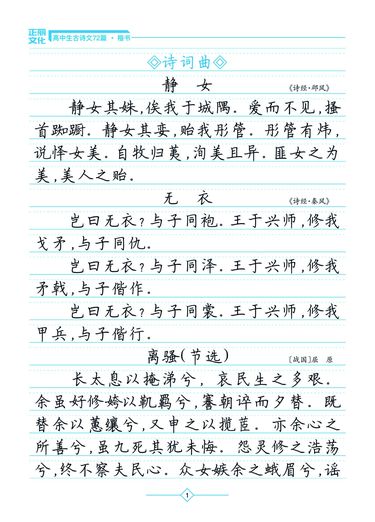 正丽文化
高中生古诗文72篇·楷书
◇诗词曲◇
静 女 《诗经·邶风》
静女其姝,俟我于城隅. 爱而不见,搔
首踟蹰. 静女其娈,贻我彤管. 彤管有炜,
说怿女美. 自牧归荑,洵美且异. 匪女之为
美,美人之贻.
无 衣 《诗经·秦风》
岂曰无衣? 与子同袍. 王于兴师,修我
戈矛,与子同仇.
岂曰无衣? 与子同泽. 王于兴师,修我
矛戟,与子偕作.
岂曰无衣? 与子同裳. 王于兴师,修我
甲兵,与子偕行.
离骚(节选) [战国]屈 原
长太息以掩涕兮, 哀民生之多艰.
余虽好修姱以鞿羁兮,謇朝谇而夕替. 既
替余以蕙纕兮,又申之以揽茝. 亦余心之
所善兮,虽九死其犹未悔. 怨灵修之浩荡
兮,终不察夫民心. 众女嫉余之蛾眉兮,谣
1